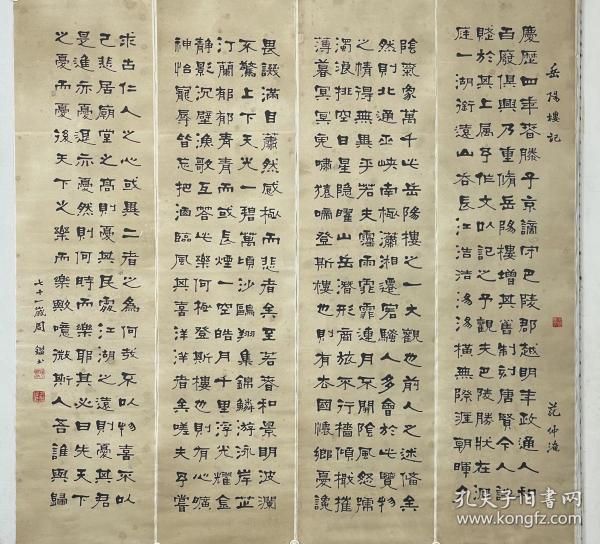 岳陽樓記 范仲淹
慶歷四年春滕子京謫守巴陵郡越明年政通人和
百廢俱興乃重脩岳陽樓增其舊制刻唐賢今人詩
賦於其上屬予作文以記之予觀夫巴陵勝狀在洞
庭一湖銜遠山吞長江浩浩湯湯橫無際涯朝暉夕
陰氣象萬千此岳陽樓之一大觀也前人之述備矣
然則北通巫峽南極瀟湘遷客騷人多會於此覽物
之情得無異乎若夫霪雨霏霏連月不開陰風怒號
濁浪排空日星隱曜山岳潛形商旅不行檣傾楫摧
薄暮冥冥虎嘯猿啼登斯樓也則有去國懷鄉憂讒
畏譏滿目蕭然感極而悲者矣至若春和景明波瀾
不驚上下天光一碧萬頃沙鷗翔集錦鱗游泳岸芷
汀蘭郁郁青青而或長煙一空皓月千里浮光耀金
靜影沉璧漁歌互答此樂何極登斯樓也則有心曠
神怡寵辱皆忘把酒臨風其喜洋洋者矣嗟夫予嘗
求古仁人之心或異二者之為何哉不以物喜不以
己悲居廟堂之高則憂其民處江湖之遠則憂其君
是進亦憂退亦憂然則何時而樂耶其必曰先天下
之憂而憂後天下之樂而樂歟噫微斯人吾誰與歸
七十一歲周
孔夫子旧书网
www.kongfz.com